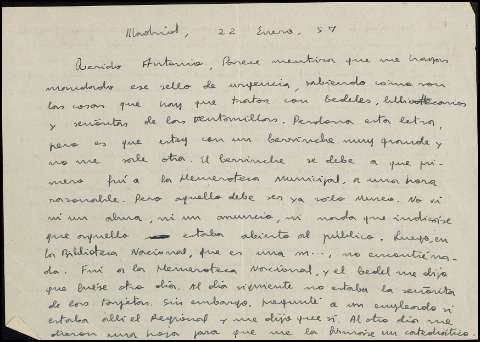 Madrid, 22 Enero, 57
Querido Antonio, Parece mentira que me hayas
mandado ese sello de urgencia, sabiendo como son
las cosas que hay que tratar con bedeles, bibliotecarios
y señoritas de las ventanillas. Perdona esta letra,
pero es que estoy con un berrinche muy grande y
no me sale otra. El berrinche se debe a que pri-
mero fui a la Hemeroteca Municipal, a una hora
razonable. Pero aquello debe ser ya solo Museo. No vi
ni un alma, ni un anuncio, ni nada que indicase
que aquello estaba abierto al público. Luego, en
la Biblioteca Nacional, que es una m..., no encontré na-
da. Fui a la Hemeroteca Nacional, y el bedel me dijo
que fuese otro día. Al día siguiente no estaba la señorita
de las tarjetas. Sin embargo, pregunté a un empleado si
estaba allí el Regional y me dijo que sí. Al otro día me
dieron una hoja para que me la firmase un catedrático.